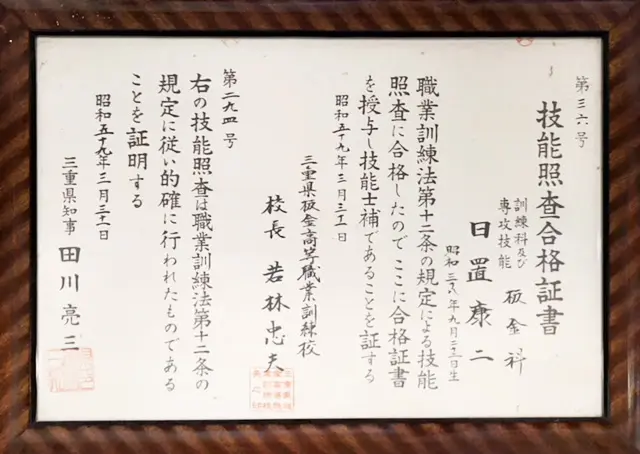 第三六号
技能照査合格証書
訓練科及び
専攻技能
板金科
日置康二
昭和三八年九月二三日生
職業訓練法第十二条の規定による技能
照査に合格したのでここに合格証書
を授与し技能士補であることを証する
昭和五十九年三月三一日
三重県板金高等職業訓練校
校長 若林忠夫
第二九四号
右の技能照査は職業訓練法第十二条の
規定に従い的確に行われたものである
ことを証明する
昭和五十九年三月三一日
三重県知事 田川亮三